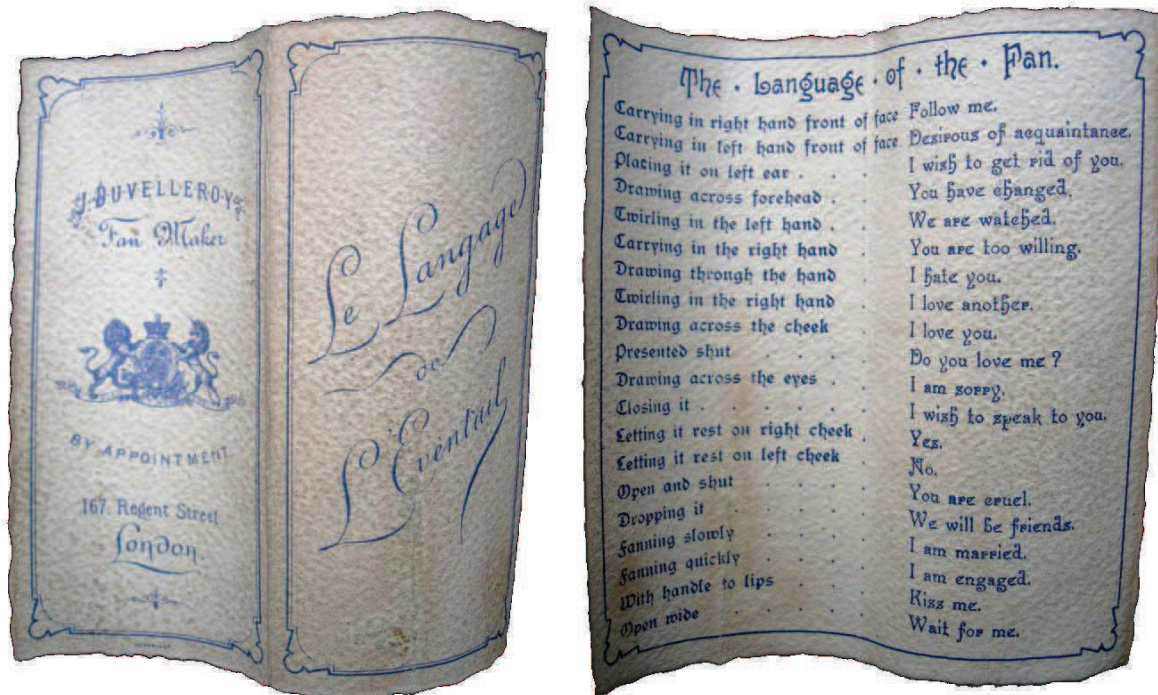 J. DUVELLEROY
Fan Maker
BY APPOINTMENT
167, Regent Street
London
Le Langage
de
L'Éventail
The · Language · of · the · Fan.
Carrying in right hand front of face Follow me.
Carrying in left hand front of face Desirous of acquaintance.
Placing it on left ear . . . I wish to get rid of you.
Drawing across forehead . . You have changed.
Twirling in the left hand . . We are watched.
Carrying in the right hand . You are too willing.
Drawing through the hand . I hate you.
Twirling in the right hand . I love another.
Drawing across the cheek . I love you.
Presented shut . . . . Do you love me ?
Drawing across the eyes . . I am sorry.
Closing it . . . . . . I wish to speak to you.
Letting it rest on right cheek . Yes.
Letting it rest on left cheek . No.
Open and shut . . . . You are cruel.
Dropping it . . . . . We will be friends.
Fanning slowly . . . . I am married.
Fanning quickly . . . . I am engaged.
With handle to lips . . . Kiss me.
Open wide . . . . . Wait for me.